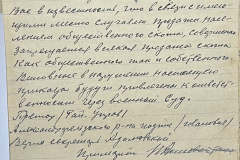 Вас в известность, что в связи с имею-
щими место случаям продажи насе-
лением общественного скота, совершенно
запрещается всякая продажа скота
как общественного так и собственного.
Виновные в нарушении настоящего
приказа будут привлечены к ответст-
венности через военный суд.
Александр р-на подпись
Верно секретарь